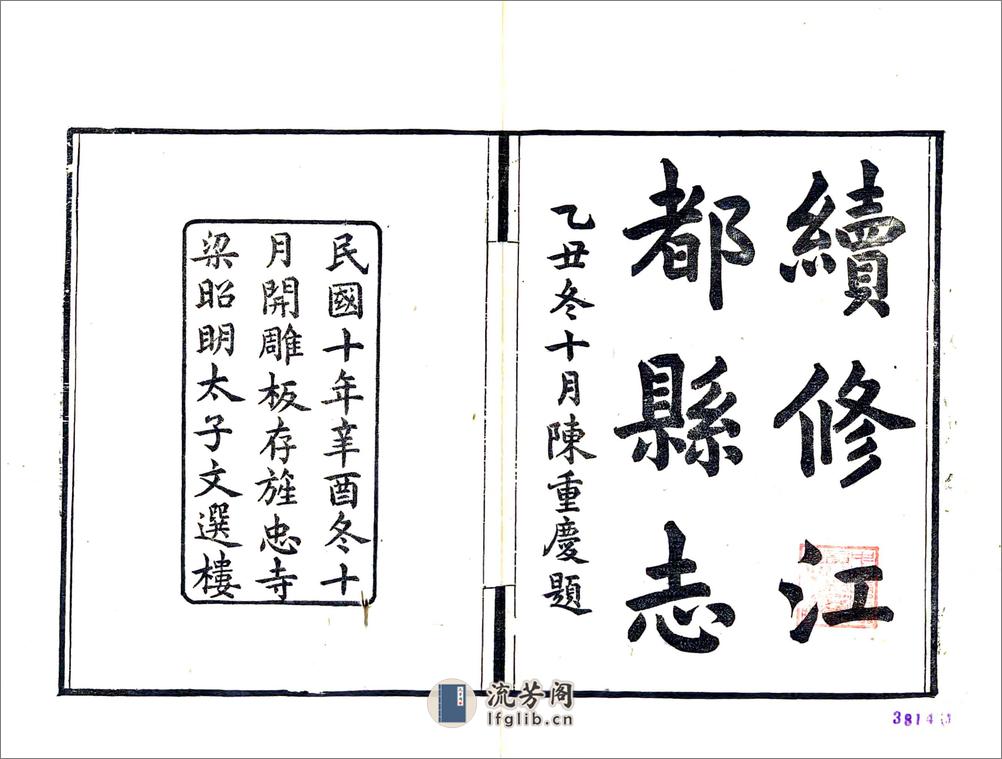 續修江
都縣志
乙丑冬十月陳重慶題
民國十年辛酉冬十
月開雕板存旌忠寺
梁昭明太子文選樓
流芳阁
lfglib.cn
3814